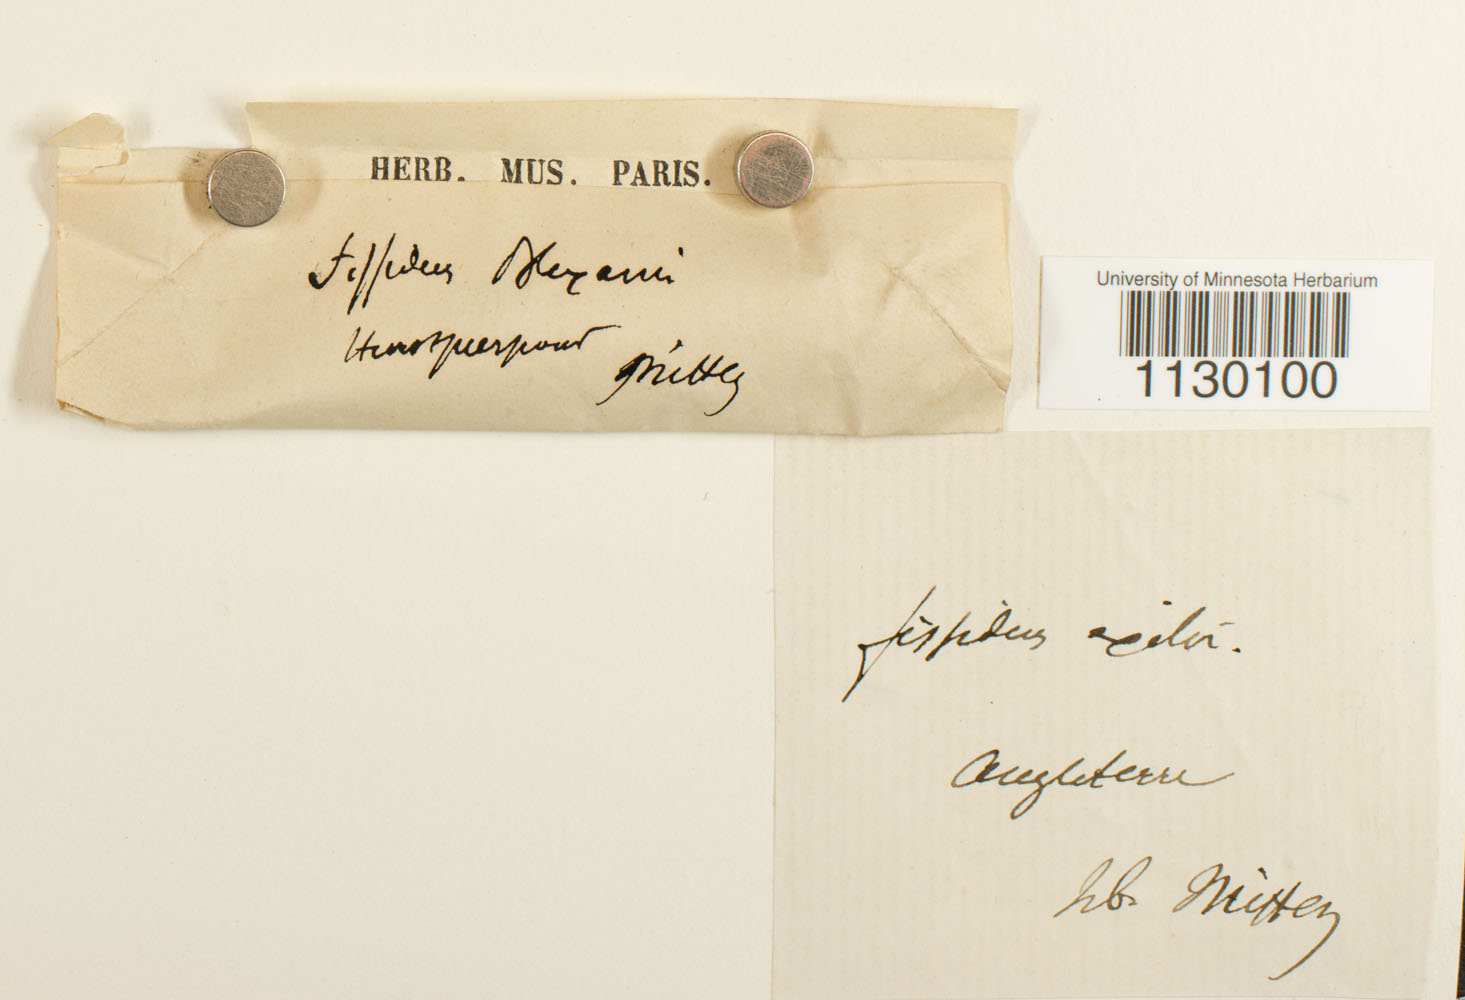 HERB. MUS. PARIS.
Fissidens Bloxami
Hurstpierpoint
Mitten
University of Minnesota Herbarium
1130100
fissidens exilis.
angleterre
hb. Mitten